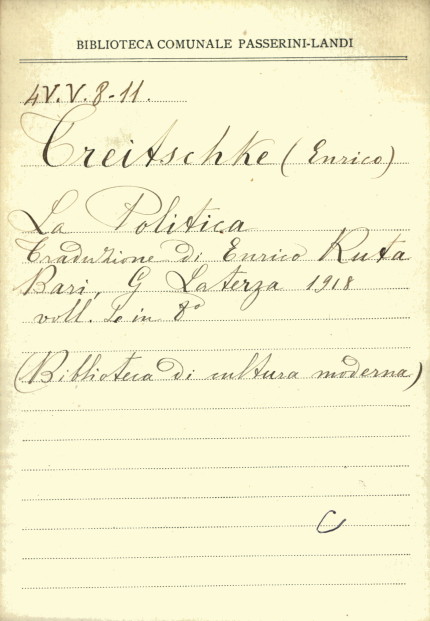 BIBLIOTECA COMUNALE PASSERINI-LANDI
4V.V.8-11.
Treitschke (Enrico)
La Politica
Traduzione di Enrico Ruta
Bari, G Laterza 1918
voll. in 8°
(Biblioteca di cultura moderna)
C